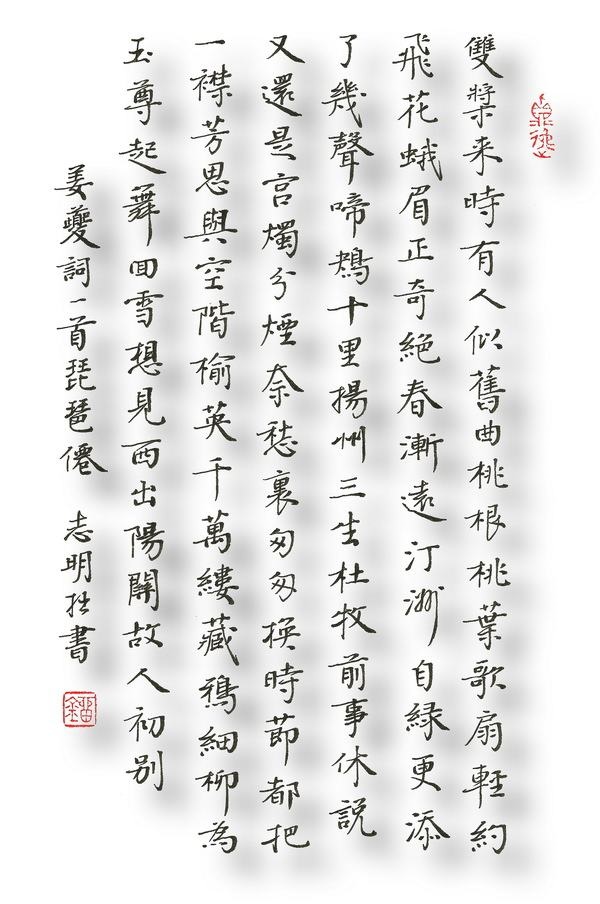 雙槳来時有人似舊曲桃根桃葉歌扇輕約
飛花蛾眉正奇絕春漸遠汀洲自緑更添
了幾聲啼鴂十里揚州三生杜牧前事休説
又還是宮燭分煙奈愁裏匆匆換時節都把
一襟芳思與空階榆英千萬縷藏鴉細柳為
玉尊起舞回雪想見西出陽關故人初别
姜夔詞一首琵琶僊 志明拙書